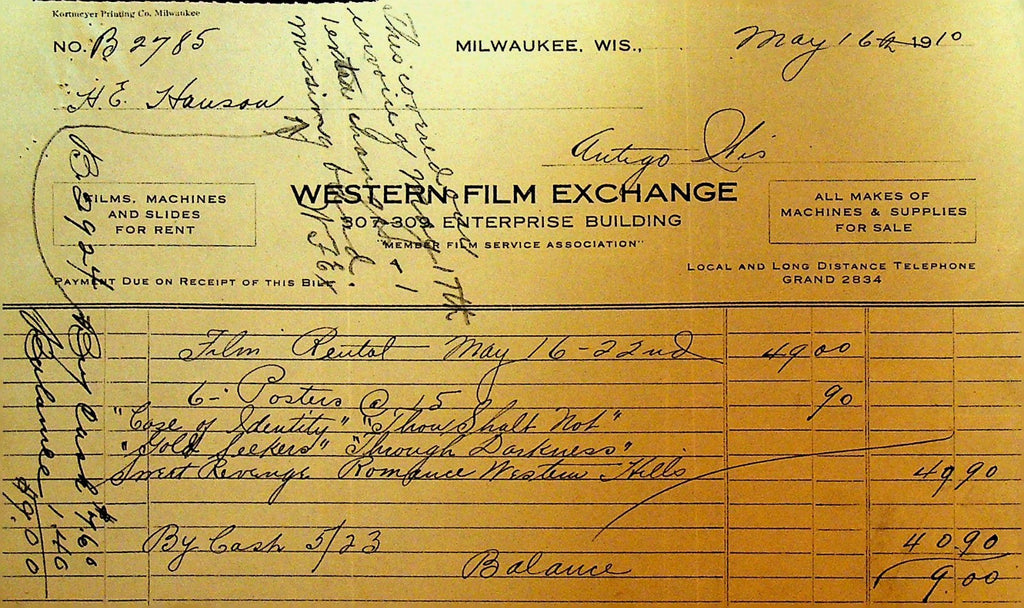 Kortmeyer Printing Co. Milwaukee
NO. B 2785
MILWAUKEE, WIS., May 16th 1910
H. E. Hanson
Antigo Wis
FILMS, MACHINES
AND SLIDES
FOR RENT
WESTERN FILM EXCHANGE
307-309 ENTERPRISE BUILDING
"MEMBER FILM SERVICE ASSOCIATION"
ALL MAKES OF
MACHINES & SUPPLIES
FOR SALE
PAYMENT DUE ON RECEIPT OF THIS BILL
LOCAL AND LONG DISTANCE TELEPHONE
GRAND 2834
Film Rental May 16-22nd 49 00
6- Posters @ 15 90
"Case of Identity" "Thou Shalt Not"
"Gold Seekers" "Through Darkness"
Sweet Revenge Romance Western Hills 49 90
By Cash 5/23 40 90
Balance 9.00
This covered our
invoice of May 17th
1 extra &
missing band.
B 3924
By Cash $7.60
Balance 1.40
$9.00